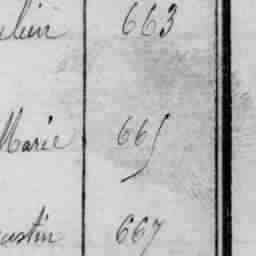 663
Marie 665
ustin 667